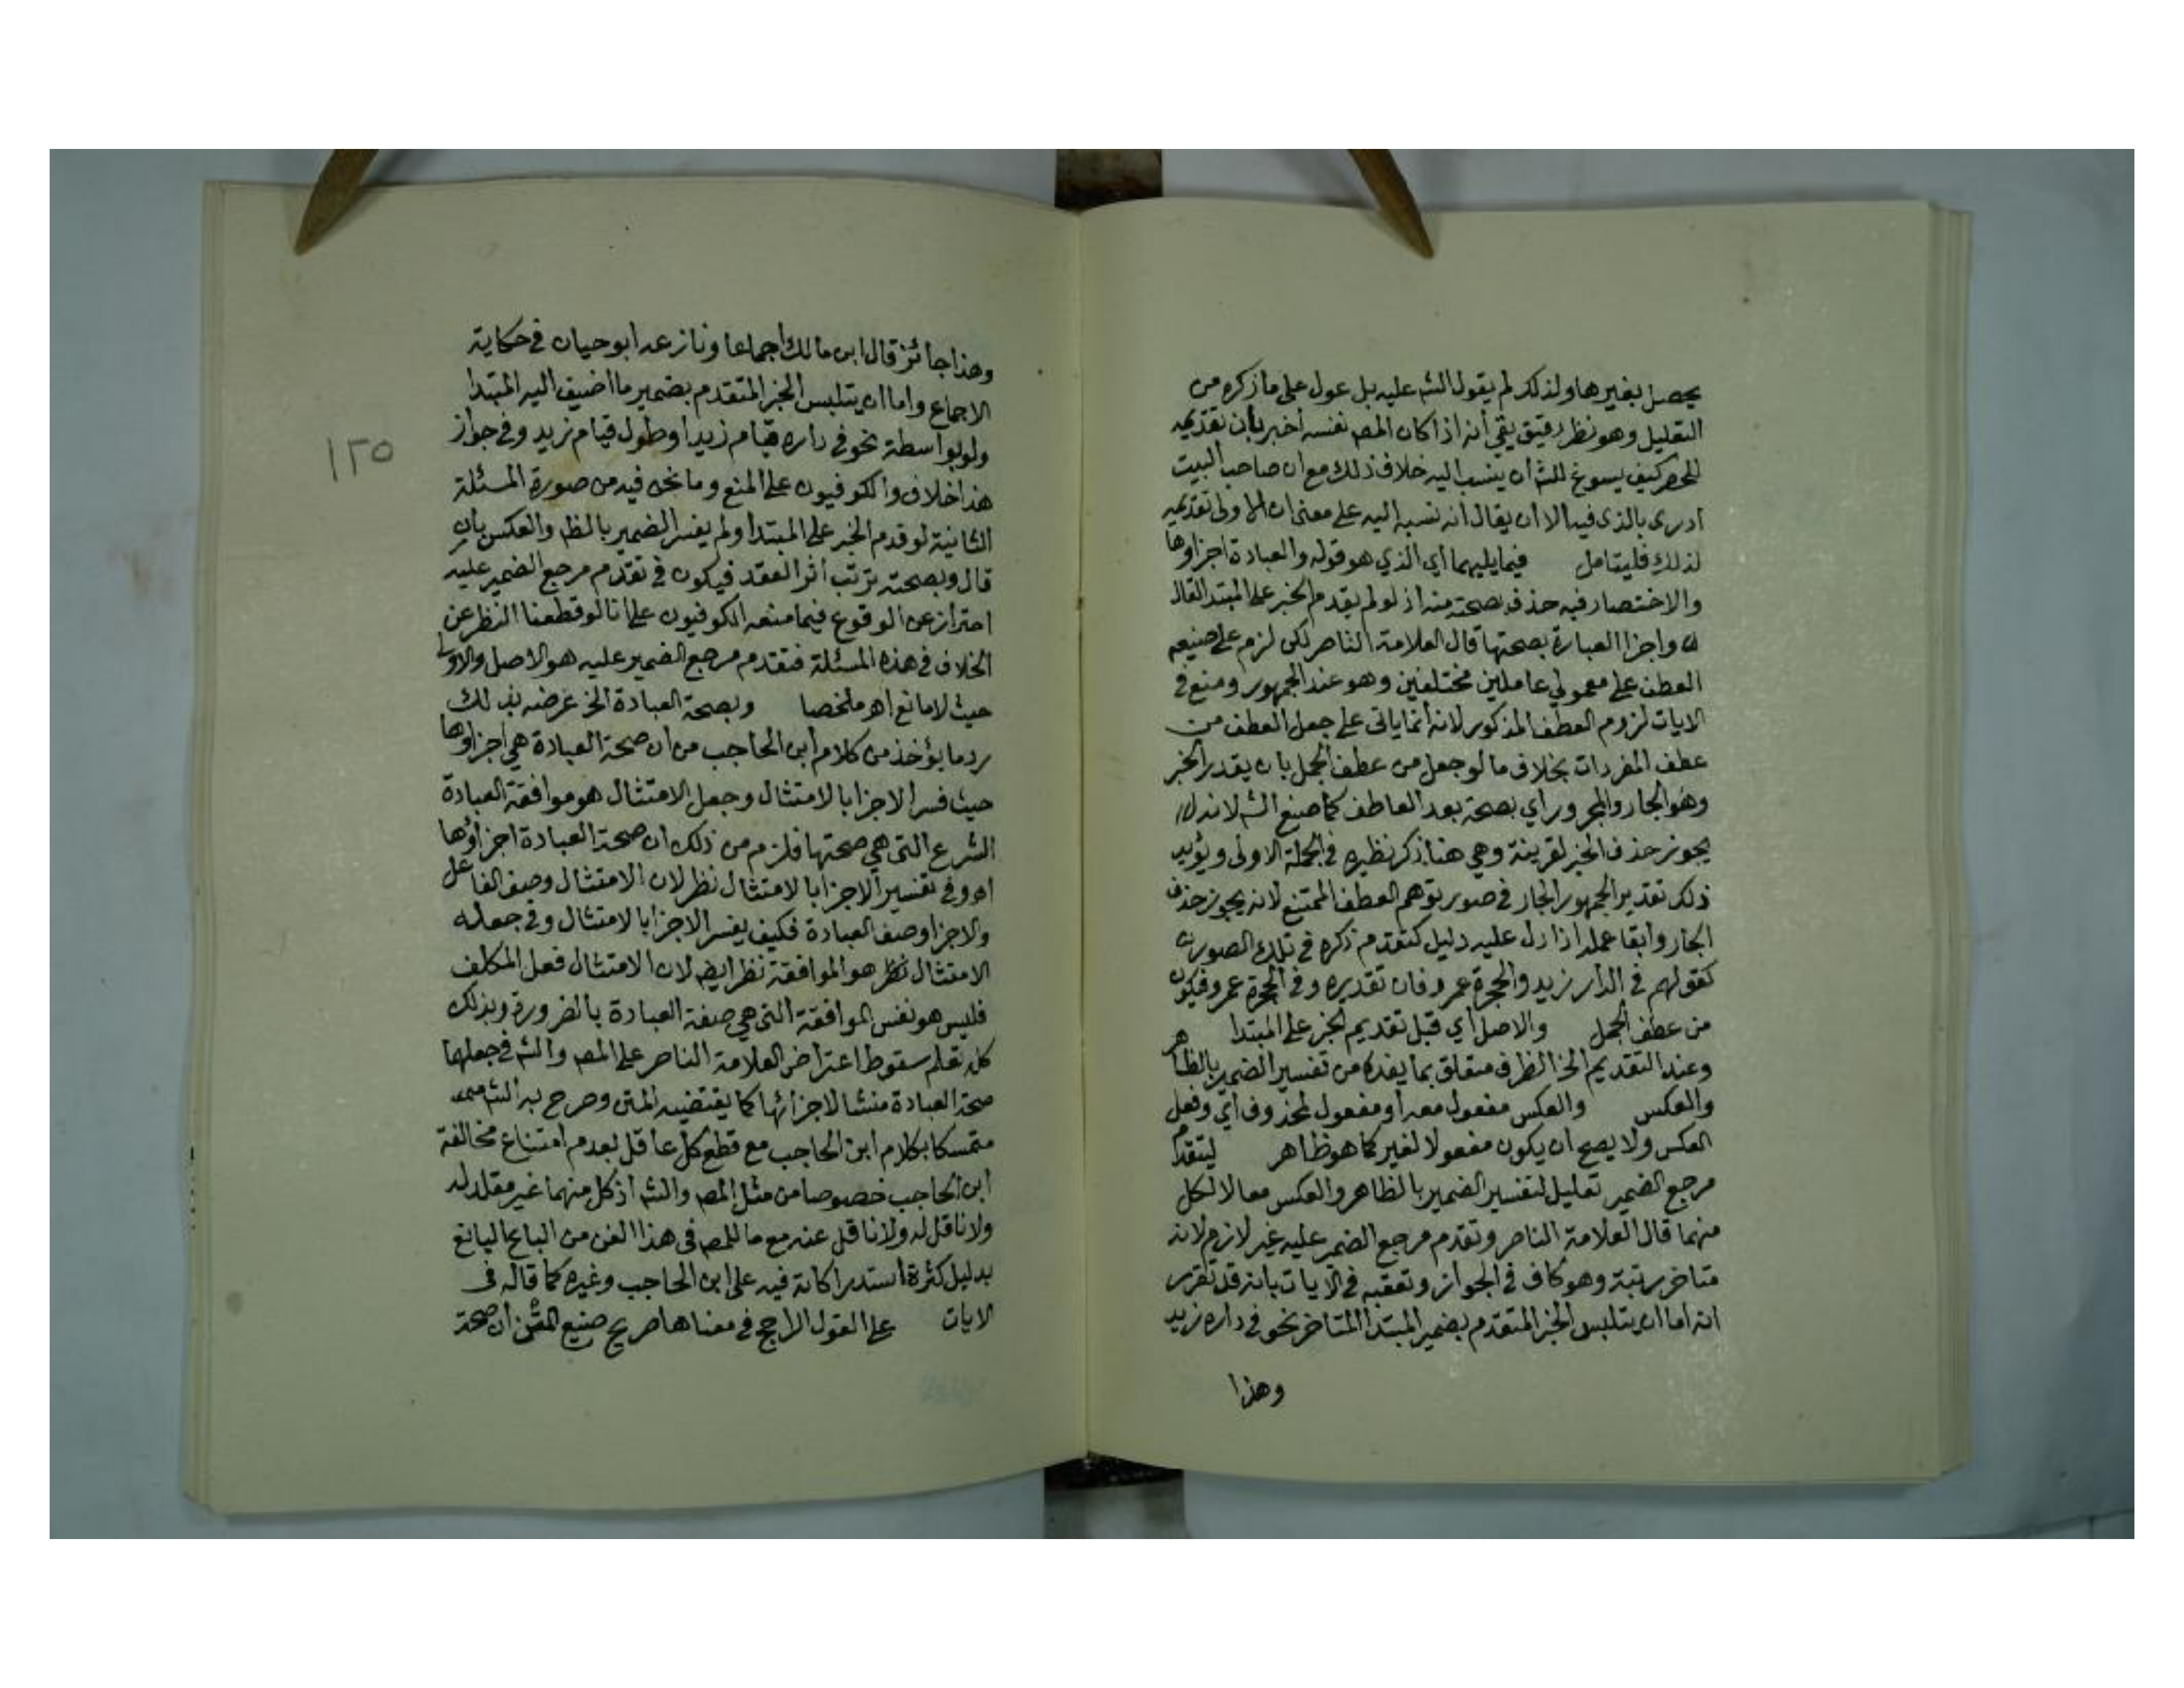 يحصل بغيرها ولذلك لم يقول الشـ عليه بل عول على ما ذكره من
التعليل وهو نظر دقيق بقي أنه اذا كان المصـ نفسه اخبر بأن تقديمه
للحصر كيف يسوغ للشـ ان ينسب اليه خلاف ذلك مع ان صاحب البيت
ادرى بالذى فيه الا ان يقال انه نسبه اليه على معنى ان الاولى تقديمه
لذلك فليتامل فيما يليهما أي الذي هو قوله والعبادة اجزاوها
والاختصار فيه حذف بصحته منه اذ لو لم يقدم الخبر على المبتدا لقال
واجزا العبارة بصحتها قال العلامة الناصر لكن لزم على صنيعه
العطف على معمولي عاملين مختلفين وهو عند الجمهور ومنع في
الايات لزوم العطف المذكور لانه انما ياتى على جعل العطف من
عطف المفردات بخلاف ما لو جعل من عطف الجمل بان يقدر الخبر
وهو الجار والمجرور اي بصحته بعد العاطف كما صنع الشـ لانه
يجوز حذف الخبر لقرينة وهي هنا ذكر نظيره في الجملة الاولى ويؤيد
ذلك تقدير الجمهور الجار في صور توهم العطف الممتنع لانه يجوز حذف
الجار وابقا عمله اذا دل عليه دليل كتقدم ذكره في تلك الصور
كقولهم في الدار زيد والحجرة عمرو فان تقديره وفي الحجرة عمرو فيكون
من عطف الجمل والاصل أي قبل تقديم الخبر على المبتدا
وعند التقديم الخ الظرف متعلق بما يفده من تفسير الضمير بالظاهر
والعكس والعكس مفعول معه أو مفعول لمحذوف أي وفعل
العكس ولا يصح ان يكون مفعولا لغير كما هو ظاهر ليتقدم
مرجع الضمير تعليل لتفسير الضمير بالظاهر والعكس معا لا لكل
منهما قال العلامة الناصر وتقدم مرجع الضمير عليه غير لازم لانه
متاخر رتبة وهو كاف في الجواز وتعقبه في الايات بانه قد تقرر
انه اما ان يتلبس الخبر المتقدم بضمير المبتدا المتاخر نحو في داره زيد
وهذا
١٢٥
وهذا جائز قال ابن مالك اجماعا ونازعه ابو حيان في حكاية
الاجماع واما ان يتلبس الخبر المتقدم بضمير ما اضيف اليه المبتدا
ولو بواسطة نحو في داره قيام زيد او طول قيام زيد وفي جواز
هذا خلاف والكوفيون على المنع وما نحن فيه من صورة المسئلة
الثانية لو قدم الخبر على المبتدا ولم يفسر الضمير بالظـ والعكس بان
قال وبصحته ترتب أثر العقد فيكون في تقدم مرجع الضمير عليه
احتراز عن الوقوع فيما منعه الكوفيون على انا لو قطعنا النظر عن
الخلاف في هذه المسئلة فتقدم مرجع الضمير عليه هو الاصل والاولى
حيث لا مانع اهـ ملخصا وبصحة العبادة الخ غرضه بذلك
رد ما يؤخذ من كلام ابن الحاجب من ان صحة العبادة هي اجزاوها
حيث فسر الاجزا بالامتثال وجعل الامتثال هو موافقة العبادة
الشرع التى هي صحتها فلزم من ذلك ان صحة العبادة اجزاؤها
اهـ وفي تفسير الاجزا بالامتثال نظر لان الامتثال وصف الفاعل
والاجزا وصف العبادة فكيف يفسر الاجزا بالامتثال وفي جعله
الامتثال نظر هو الموافقة نظر ايضـ لان الامتثال فعل المكلف
فليس هو نفس الموافقة التى هي صفة العبادة بالضرورة وبذلك
كله تعلم سقوط اعتراض العلامة الناصر على المصـ والشـ في جعلها
صحة العبادة منشا لاجزائها كما يقتضيه المتن وصرح به الشـ
متمسكا بكلام ابن الحاجب مع قطع كل عاقل بعدم امتناع مخالفة
ابن الحاجب خصوصا من مثل المصـ والشـ اذ كل منهما غير مقلد له
ولا ناقل له ولا ناقل عنه مع ما للمصـ فى هذا الفن من الباع البالغ
بدليل كثرة استدراكاته فيه على ابن الحاجب وغيره كما قاله فى
الايات على القول الراجح في معناها صريح صنيع المتن ان صحة